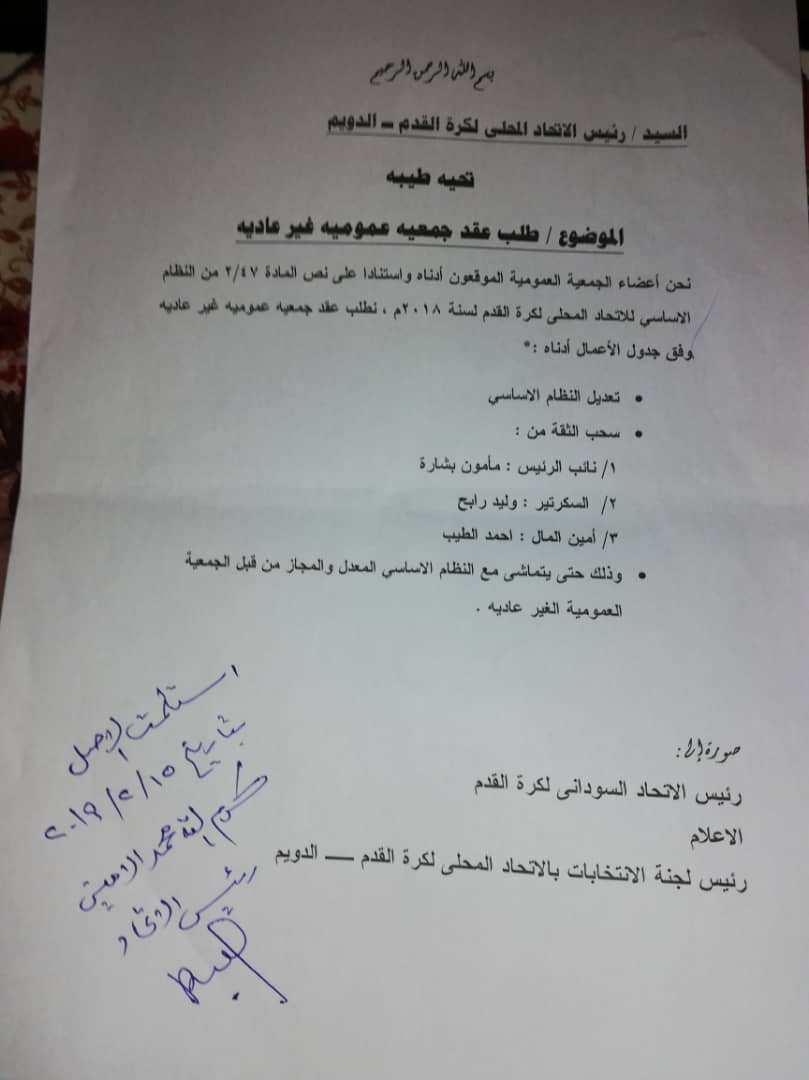 بسم الله الرحمن الرحيم
السيد / رئيس الاتحاد المحلى لكرة القدم ــ الدويم
تحيه طيبه
الموضوع / طلب عقد جمعيه عموميه غير عاديه
نحن أعضاء الجمعية العمومية الموقعون أدناه واستنادا على نص المادة ٢/٤٧ من النظام
الاساسي للاتحاد المحلى لكرة القدم لسنة ٢٠١٨م ، نطلب عقد جمعيه عموميه غير عاديه
وفق جدول الأعمال أدناه :*
• تعديل النظام الاساسي
• سحب الثقة من :
١/ نائب الرئيس : مأمون بشارة
٢/ السكرتير : وليد رابح
٣/ أمين المال : احمد الطيب
• وذلك حتى يتماشى مع النظام الاساسي المعدل والمجاز من قبل الجمعية
العمومية الغير عاديه .
صورة إلى:
رئيس الاتحاد السودانى لكرة القدم
الاعلام
رئيس لجنة الانتخابات بالاتحاد المحلى لكرة القدم ــــ الدويم
استلمت الاصل
بتاريخ ٢٠١٩/٢/١٥
كرم الله محمد الامين
رئيس الاتحاد